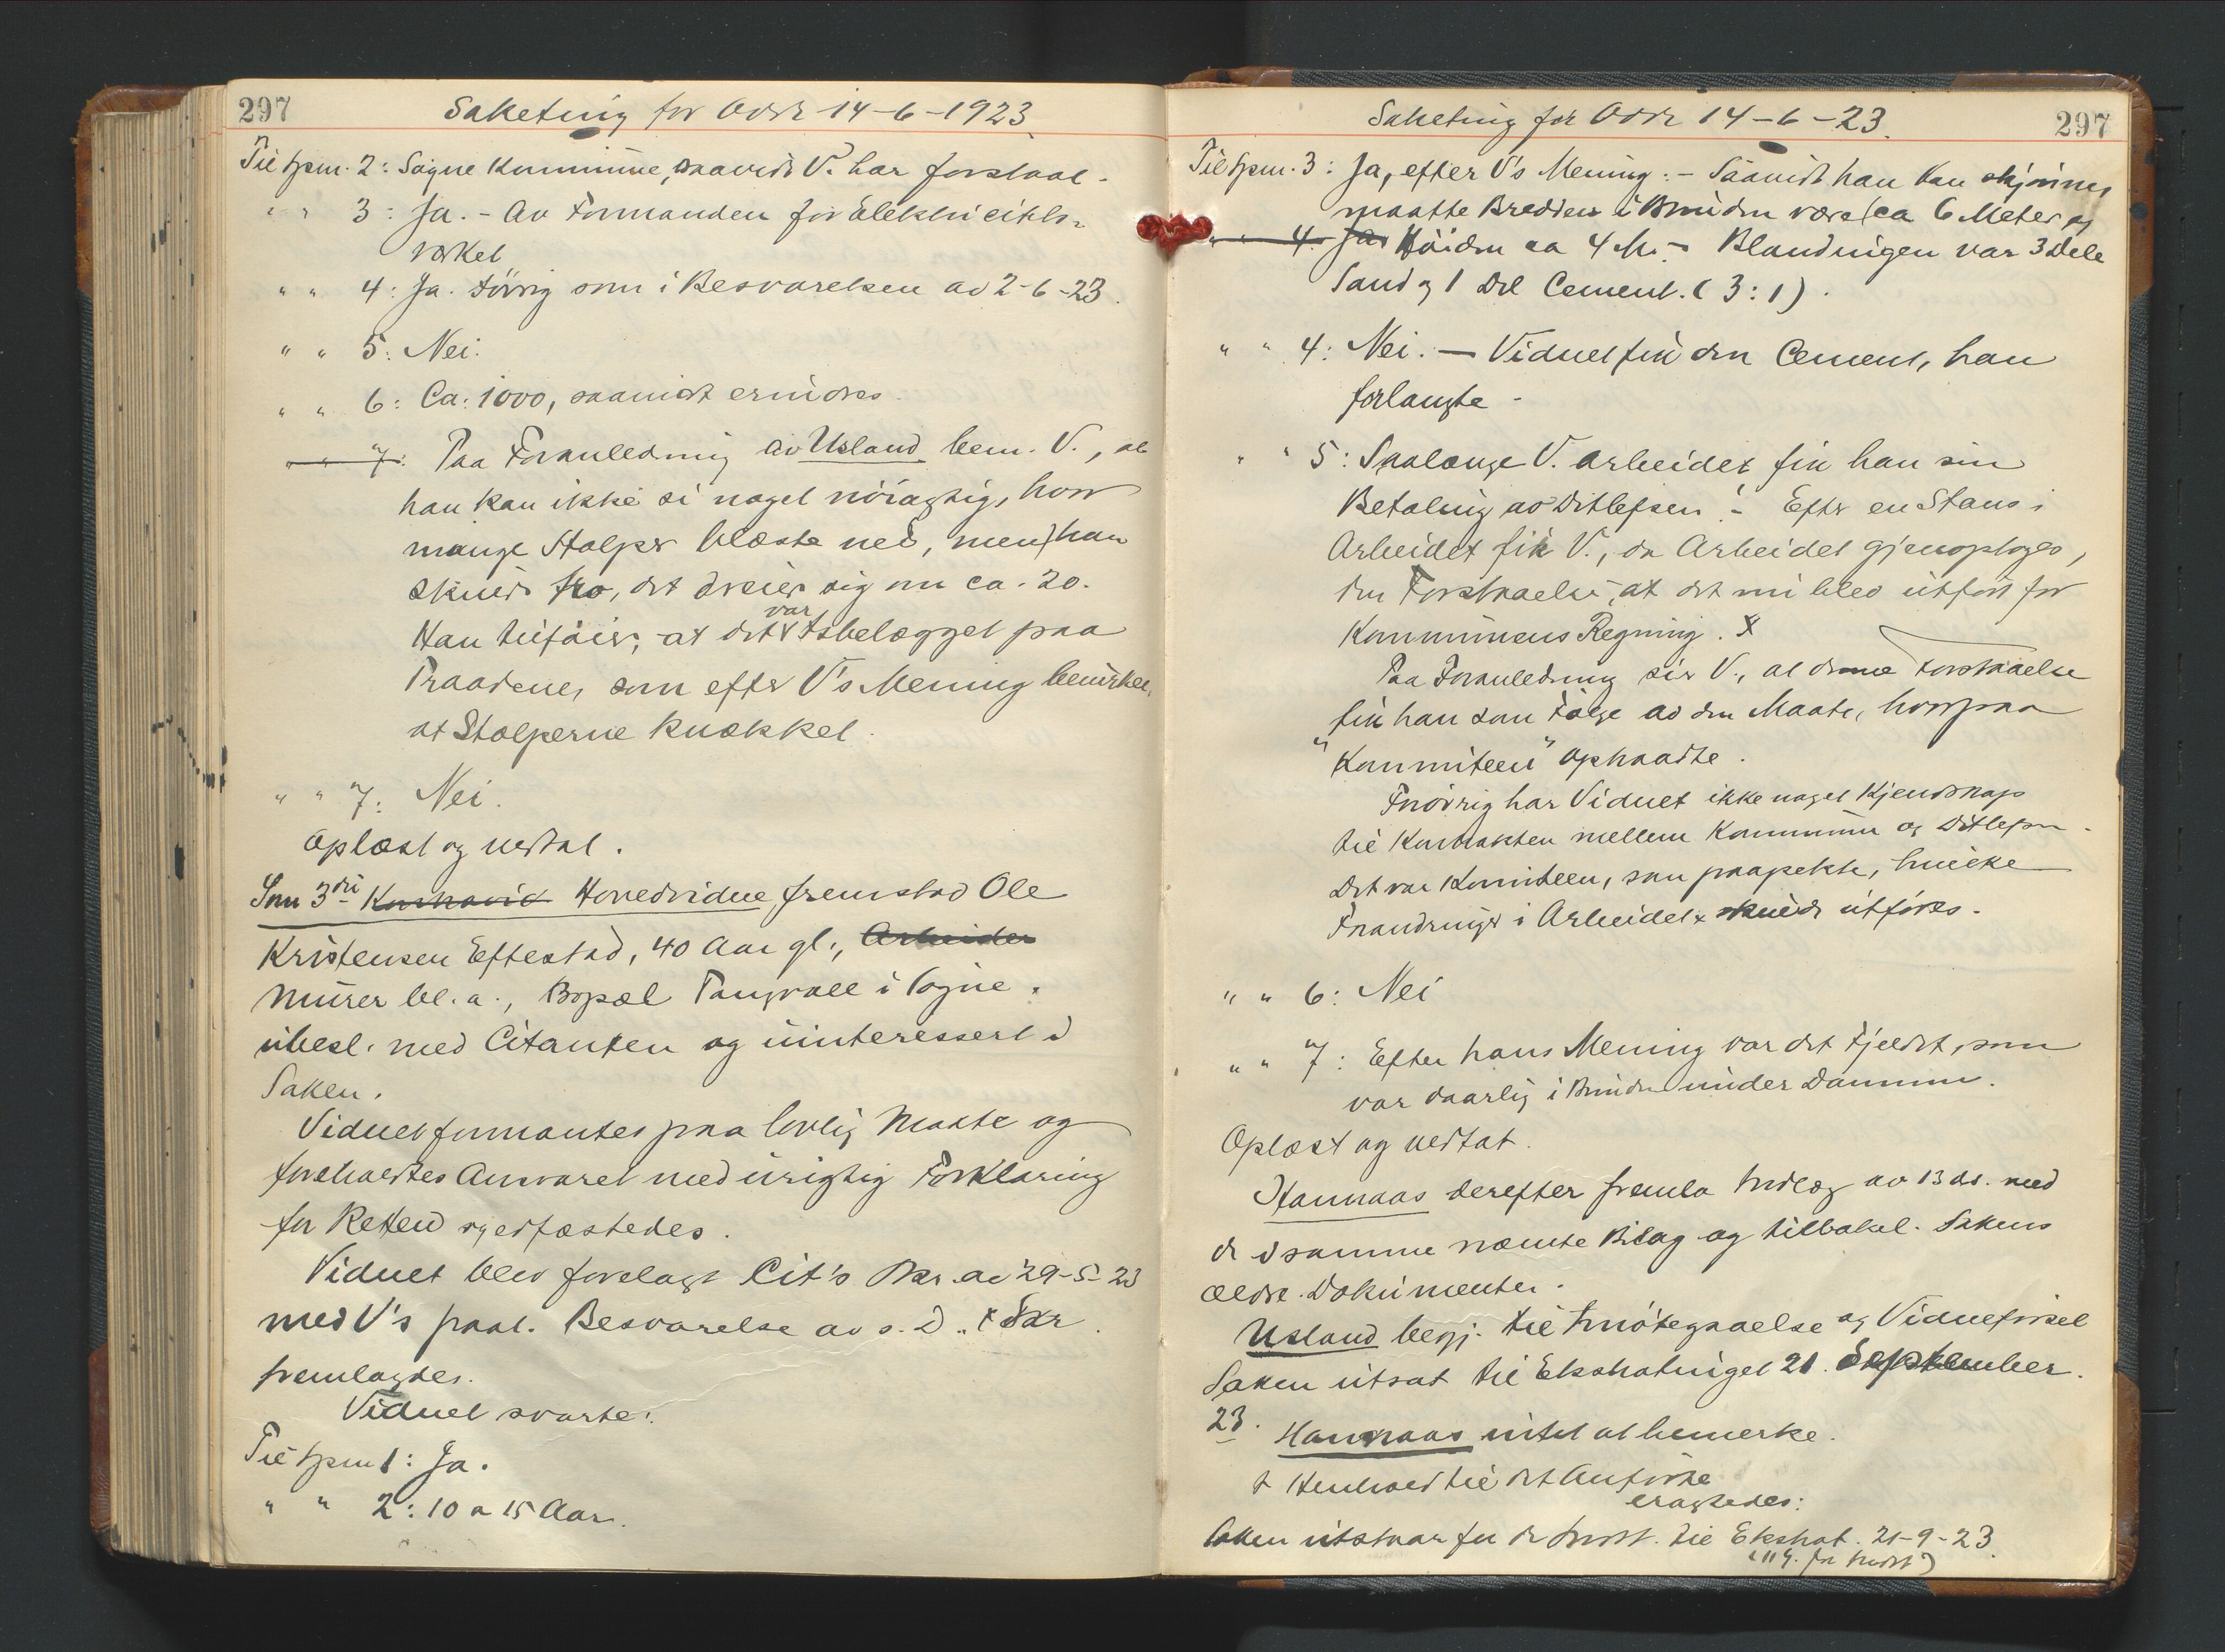 297
Saketing for Odds 14-6-1923
Til Spm. 2: Søgne Kommune, saavidt V. har forstaat.
" " 3: Ja. - Av Formanden for Elektricitets-
verket
" " 4: Ja. Førrig som i Besvarelsen av 2-6-23.
" " 5: Nei.
" " 6: Ca. 1000, saavidt erindres.
" " 7: Paa Foranledning av Usland bem. V., at
han kan ikke si noget nøiagtig, hvor
mange Stolper blæste ned, men han
skulde tro, det dreier sig om ca. 20.
Han tilføier, at det var Isbelægget paa
Traadene, som efter V's Mening bevirket,
at Stolperne knækket.
" " 7: Nei.
Oplæst og vedtat.
Som 3die Hovedvidne fremstod Ole
Kristensen Eftestad, 40 Aar gl., Arbeider
Murer bl. a., Bopæl Tangvall i Søgne.
ubesl. med Citanten og uinteressert i
Saken.
Vidnet formantes paa lovlig Maate og
foreholdtes Ansvaret med urigtig Forklaring
for Retten og edfæstedes.
Vidnet blev forelagt Cit's Skr. av 29-5-23
med V's paat. Besvarelse av s. D. Skr.
fremlagdes.
Vidnet svarte:
Til Spm 1: Ja.
" " 2: 10 a 15 Aar.
Saketing for Odds 14-6-23.
297
Til Spm. 3: Ja, efter V's Mening. - Saavidt han kan skjønne,
maatte Bredden i Bunden være ca 6 Meter og
" " 4. Ja Høiden ca 4 M. - Blandingen var 3 Dele
Sand og 1 Del Cement. (3:1).
" " 4: Nei. - Vidnet fik den Cement, han
forlangte.
" " 5: Saalænge V. arbeidet, fik han sin
Betaling av Ditlefsen. - Efter en Stans i
Arbeidet fik V., da Arbeidet gjenoptoges,
den Forstaaelse, at det nu blev utført for
Kommunens Regning. X
Paa Foranledning sier V., at denne Forstaaelse
fik han som Følge av den Maate, hvorpaa
"Kommiteen" optraadte.
Forøvrig har Vidnet ikke noget Kjendskap
til Kontrakten mellem Kommunen og Ditlefsen.
Det var Komiteen, som paapekte, hvilke
Forandringer i Arbeidet skulde utføres.
" " 6: Nei
" " 7: Efter hans Mening var det Fjeldet, som
var daarlig i Bunden under Dammen.
Oplæst og vedtat.
Hannaas derefter fremla Indlæg av 13 ds. med
de i samme nævnte Bilag og tilbakel. Sakens
ældre Dokumenter.
Usland begj. til Imøtegaaelse og Vidneførsel
Saken utsat til Ekstratinget 21. September.
23.
Hannaas intet at bemerke.
I Henhold til det Anførte
eragtedes:
Saken utstaar for de Indst. til Ekstrat. 21-9-23.